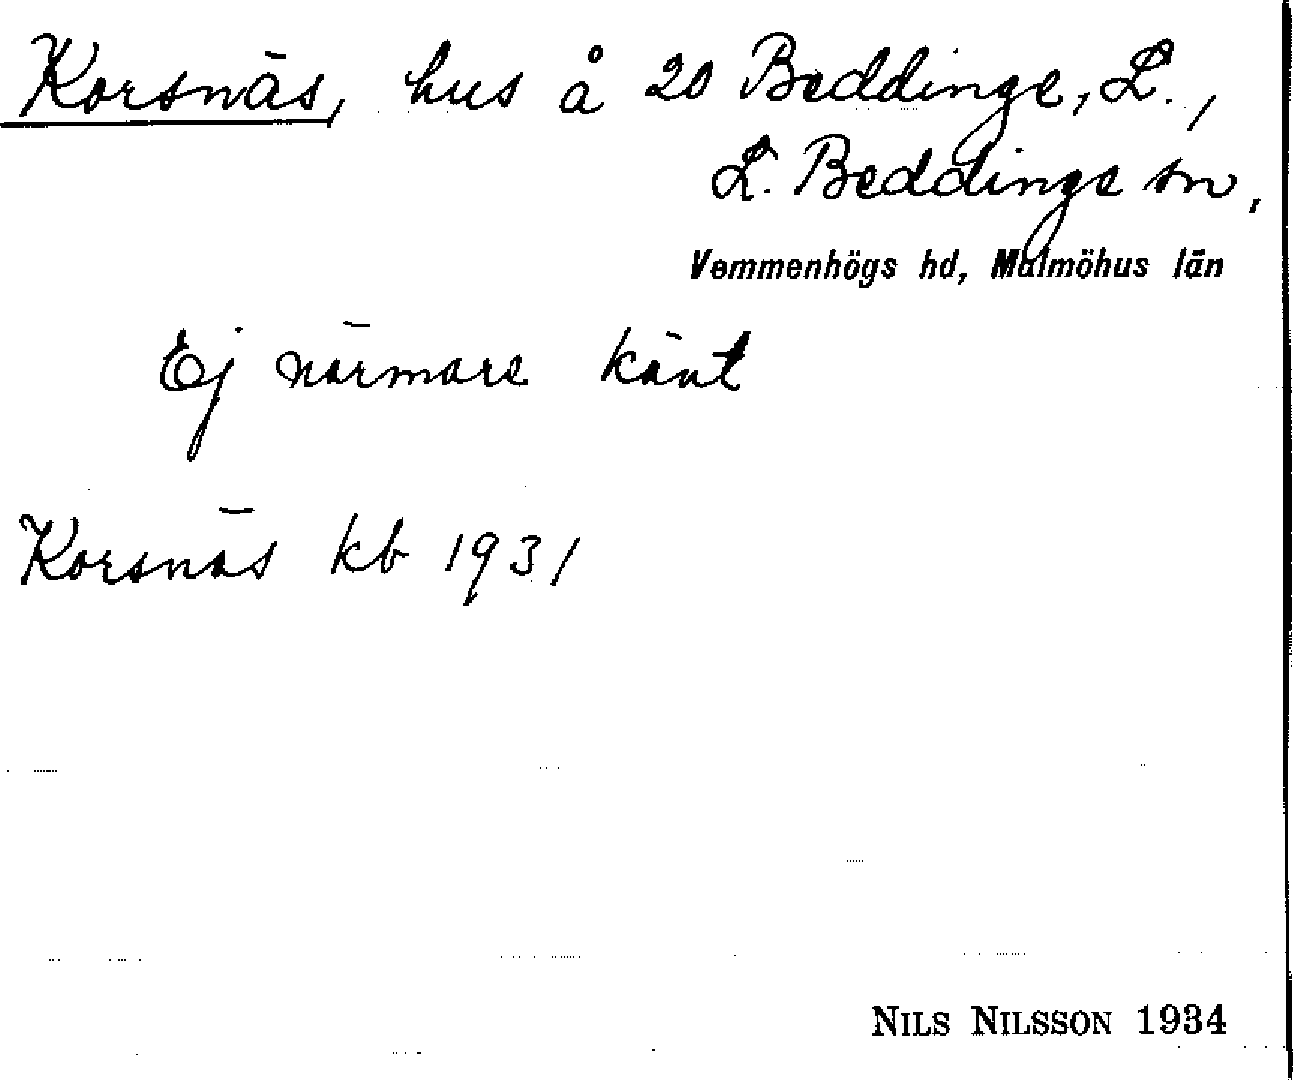 Korsnäs, hus å 20 Beddinge, L.,
L. Beddinge sn,
Vemmenhögs hd, Malmöhus län
Ej närmare känt
Korsnäs kb 1931
NILS NILSSON 1934